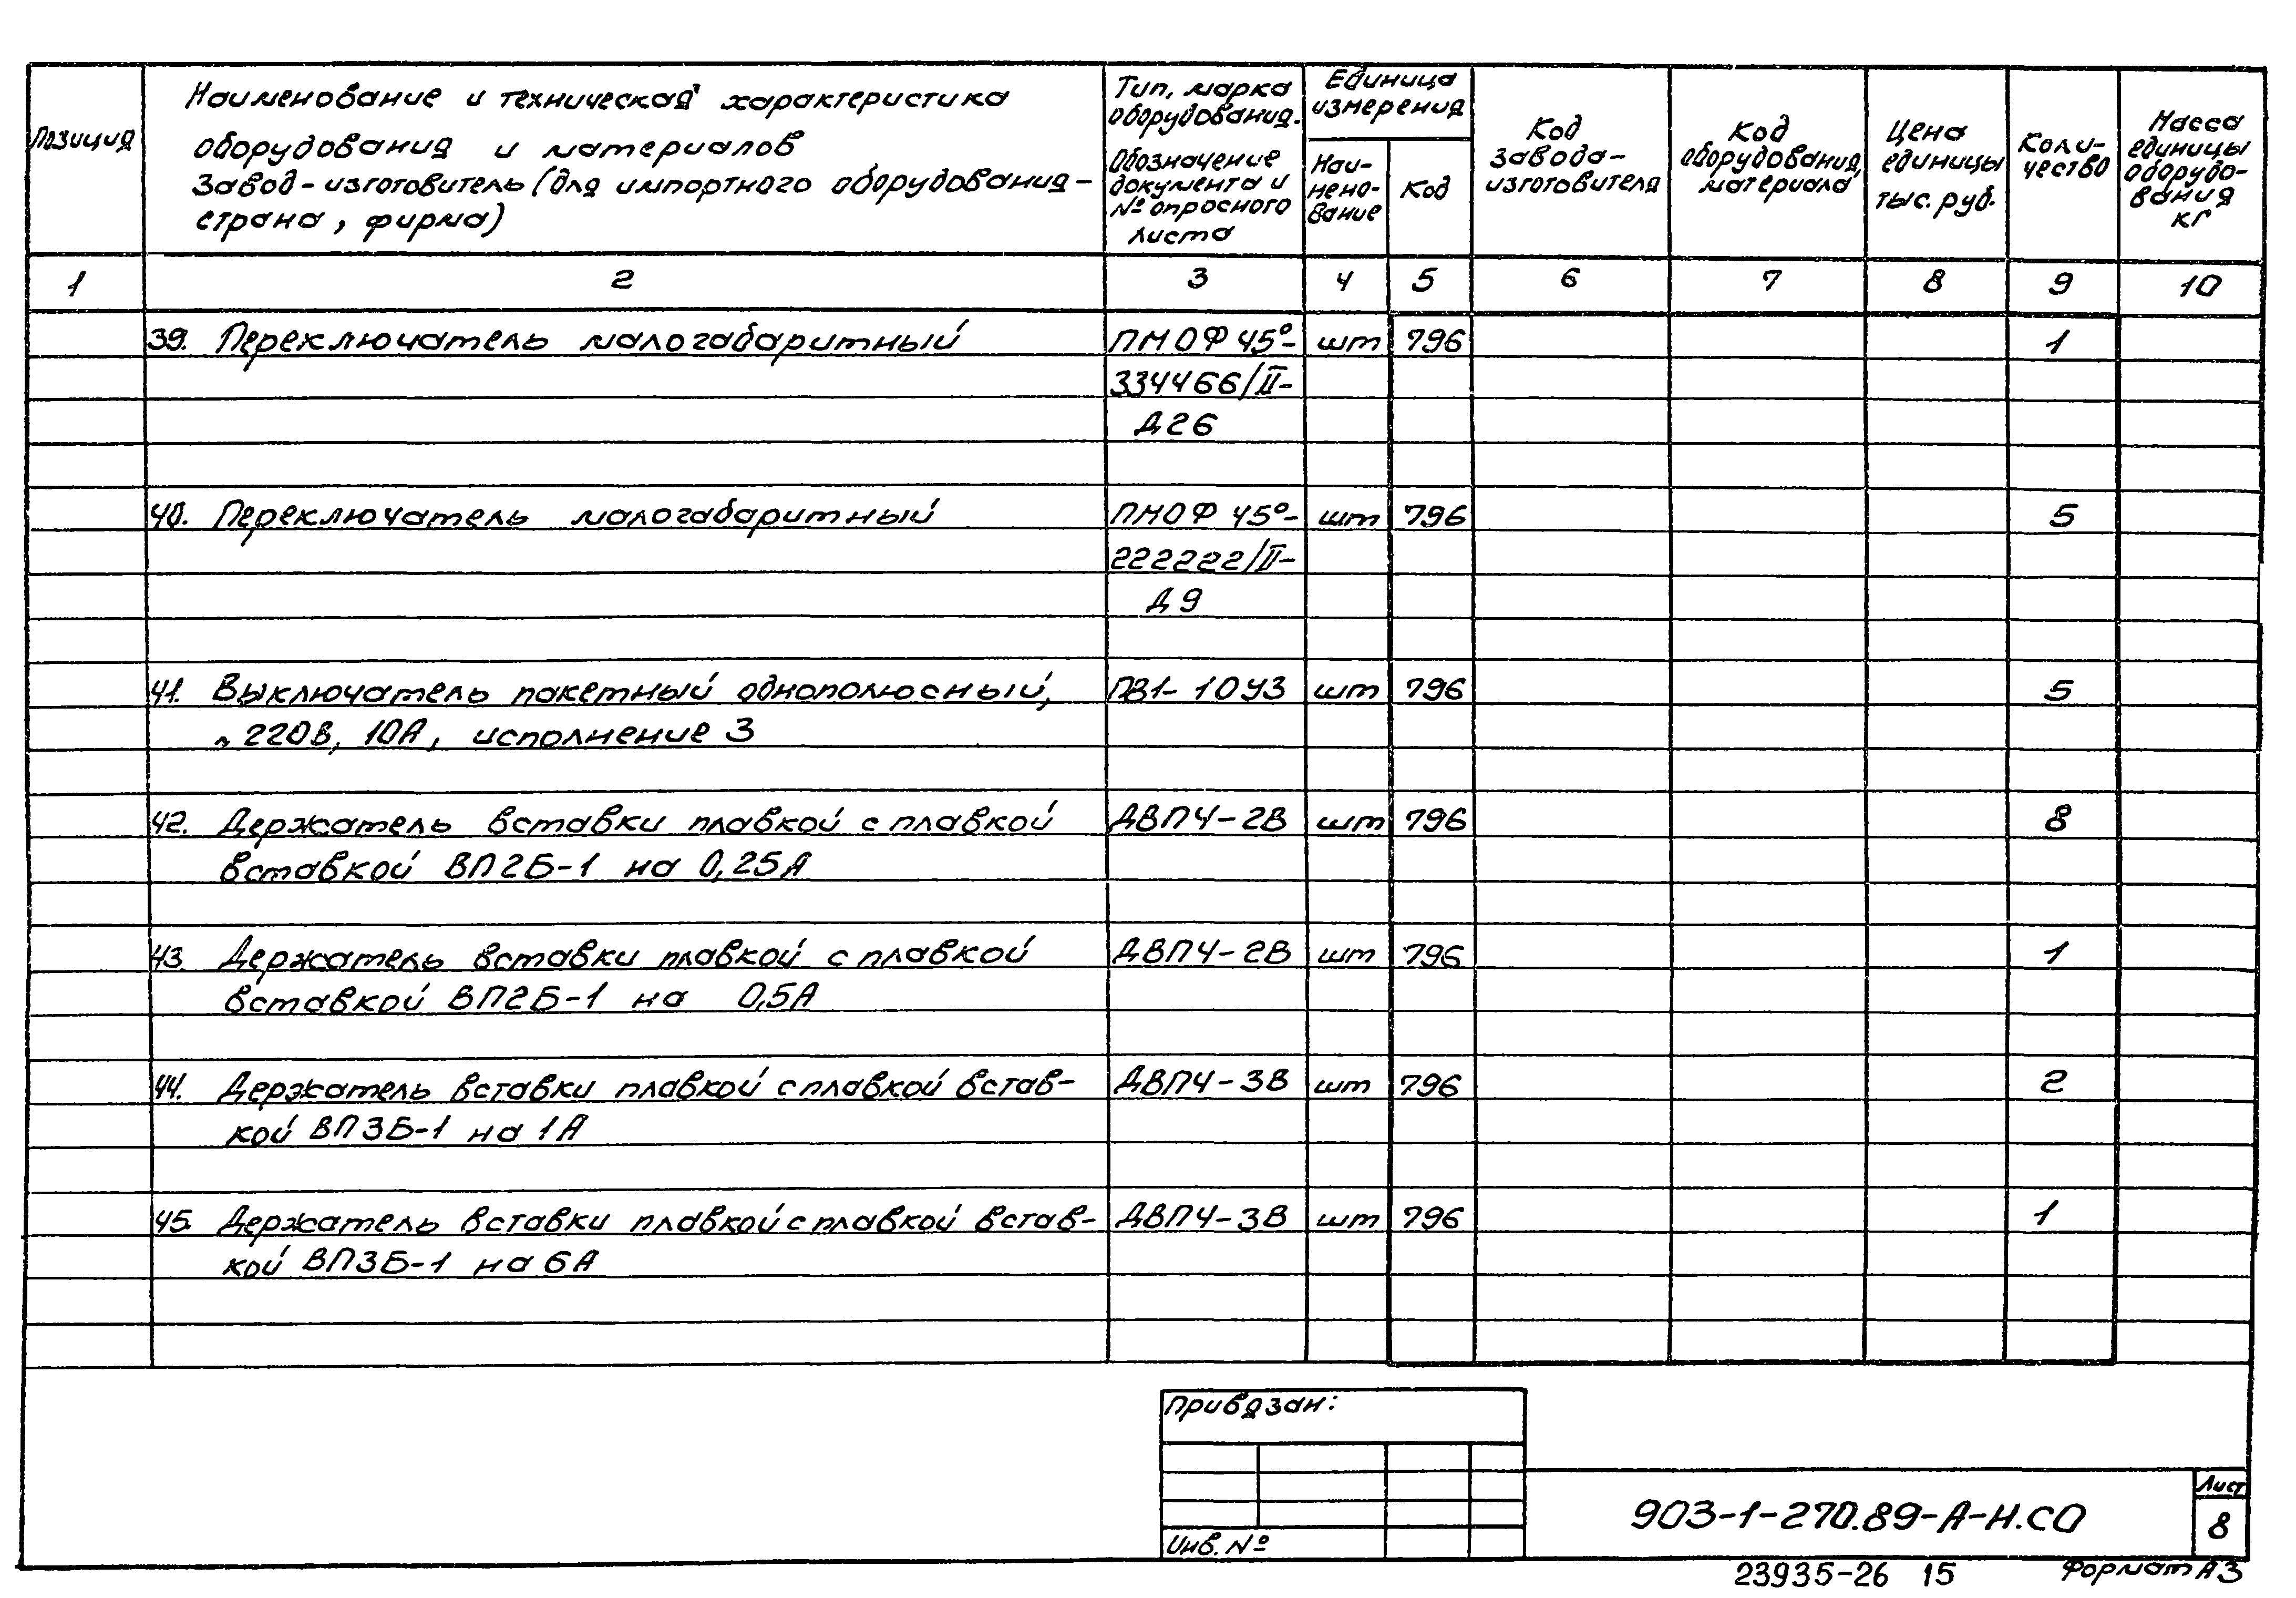 Позиция
Наименование и техническая характеристика
оборудования и материалов
Завод-изготовитель (для импортного оборудования-
страна, фирма)
Тип, марка
оборудования.
Обозначение
документа и
№ опросного
листа
Единица
измерения
Наи-
мено-
вание
Код
Код
завода-
изготовителя
Код
оборудования,
материала
Цена
единицы
тыс. руб.
Коли-
чество
Масса
единицы
оборудо-
вания
кг
1 2 3 4 5 6 7 8 9 10
39. Переключатель малогабаритный ПМОФ 45°- шт 796 1
334466/II-
Д26
40. Переключатель малогабаритный ПМОФ 45°- шт 796 5
222222/II-
Д9
41. Выключатель пакетный однополюсный, ПВ1-10У3 шт 796 5
~220В, 10А, исполнение 3
42. Держатель вставки плавкой с плавкой ДВП4-2В шт 796 8
вставкой ВП2Б-1 на 0,25А
43. Держатель вставки плавкой с плавкой ДВП4-2В шт 796 1
вставкой ВП2Б-1 на 0,5А
44. Держатель вставки плавкой с плавкой встав- ДВП4-3В шт 796 2
кой ВП3Б-1 на 1А
45. Держатель вставки плавкой с плавкой встав- ДВП4-3В шт 796 1
кой ВП3Б-1 на 6А
Привязан:
Инв. №
903-1-270.89-А-Н.СО
Лист
8
23935-26 15 Формат А3